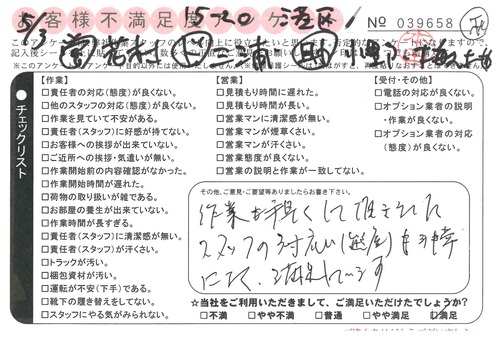 お客様不満足度アンケート
5/3
1570
港区
No 039658
チェックリスト
【作業】
□責任者の対応(態度)が良くない。
□他のスタッフの対応(態度)が良くない。
□作業を見ていて不安がある。
□責任者(スタッフ)に好感が持てない。
□お客様への挨拶が出来ていない。
□ご近所への挨拶・気遣いが無い。
□作業開始前の内容確認がなかった。
□作業開始時間が遅れた。
□荷物の取り扱いが雑である。
□お部屋の養生が出来ていない。
□作業時間が長すぎる。
□責任者(スタッフ)に清潔感が無い。
□責任者(スタッフ)が汗くさい。
□トラックが汚い。
□梱包資材が汚い。
□運転が不安(下手)である。
□靴下の履き替えをしてない。
□スタッフにやる気がみられない。
【営業】
□見積もり時間に遅れた。
□見積もり時間が長い。
□営業マンに清潔感が無い。
□営業マンが煙草くさい。
□営業マンが汗くさい。
□営業態度が良くない。
□営業の説明と作業が一致してない。
【受付・その他】
□電話の対応が良くない。
□オプション業者の説明
・作業が良くない。
□オプション業者の対応
(態度)が良くない。
その他、ご意見・ご要望等ありましたらお書き下さい。
作業も手早くして頂きました
スタッフの対応(態度)も非常
によく、満足しています
☆当社をご利用いただきまして、ご満足いただけたでしょうか?
□不満 □やや不満 □普通 □やや満足 □満足